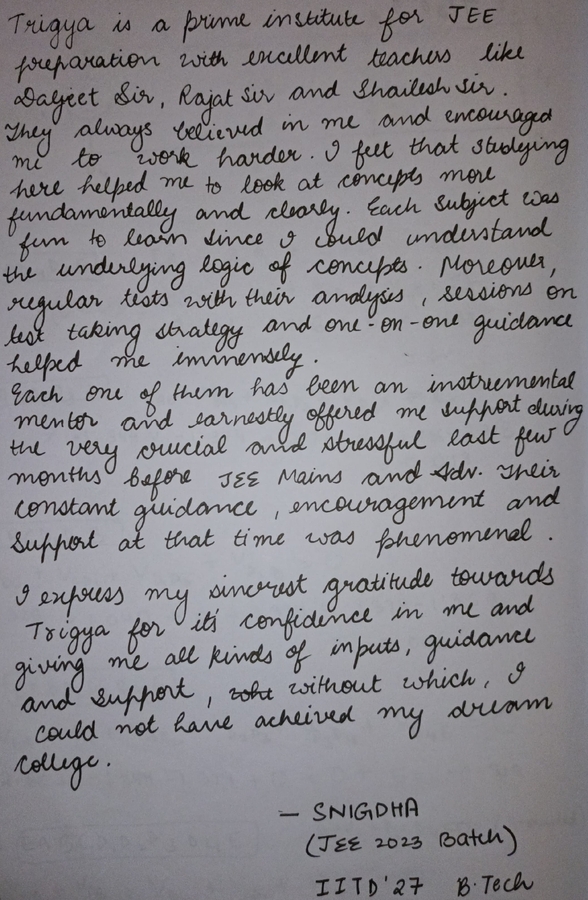 Trigya is a prime institute for JEE
preparation with excellent teachers like
Daljeet Sir, Rajat Sir and Shailesh Sir.
They always believed in me and encouraged
me to work harder. I felt that studying
here helped me to look at concepts more
fundamentally and clearly. Each subject was
fun to learn since I could understand
the underlying logic of concepts. Moreover,
regular tests with their analysis, sessions on
test taking strategy and one-on-one guidance
helped me immensely.
Each one of them has been an instrumental
mentor and earnestly offered me support during
the very crucial and stressful last few
months before JEE Mains and Adv. Their
constant guidance, encouragement and
support at that time was phenomenal.
I express my sincerest gratitude towards
Trigya for it's confidence in me and
giving me all kinds of inputs, guidance
and support, without which, I
could not have acheived my dream
college.
— SNIGDHA
(JEE 2023 Batch)
IITD'27 B.Tech